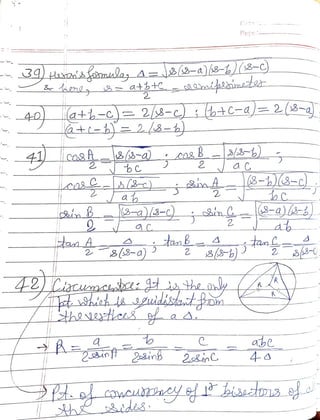 39) Heron's formula, Δ = √s(s-a)(s-b)(s-c)
& here, s = a+b+c/2 = semiperimeter
40) (a+b-c) = 2(s-c) ; (b+c-a) = 2(s-a)
(a+c-b) = 2(s-b)
41) cos A/2 = √s(s-a)/bc ; cos B/2 = √s(s-b)/ac ;
cos C/2 = √s(s-c)/ab ; sin A/2 = √(s-b)(s-c)/bc ;
sin B/2 = √(s-a)(s-c)/ac ; sin C/2 = √(s-a)(s-b)/ab
tan A/2 = Δ/s(s-a) ; tan B/2 = Δ/s(s-b) ; tan C/2 = Δ/s(s-
42) Circumcentre: It is the only
pt. which is equidistant from
the vertices of a Δ.
R R R
→ R = a/2sinA = b/2sinB = c/2sinC = abc/4Δ
→ Pt. of concurrency of ⊥r bisectors of
the sides.